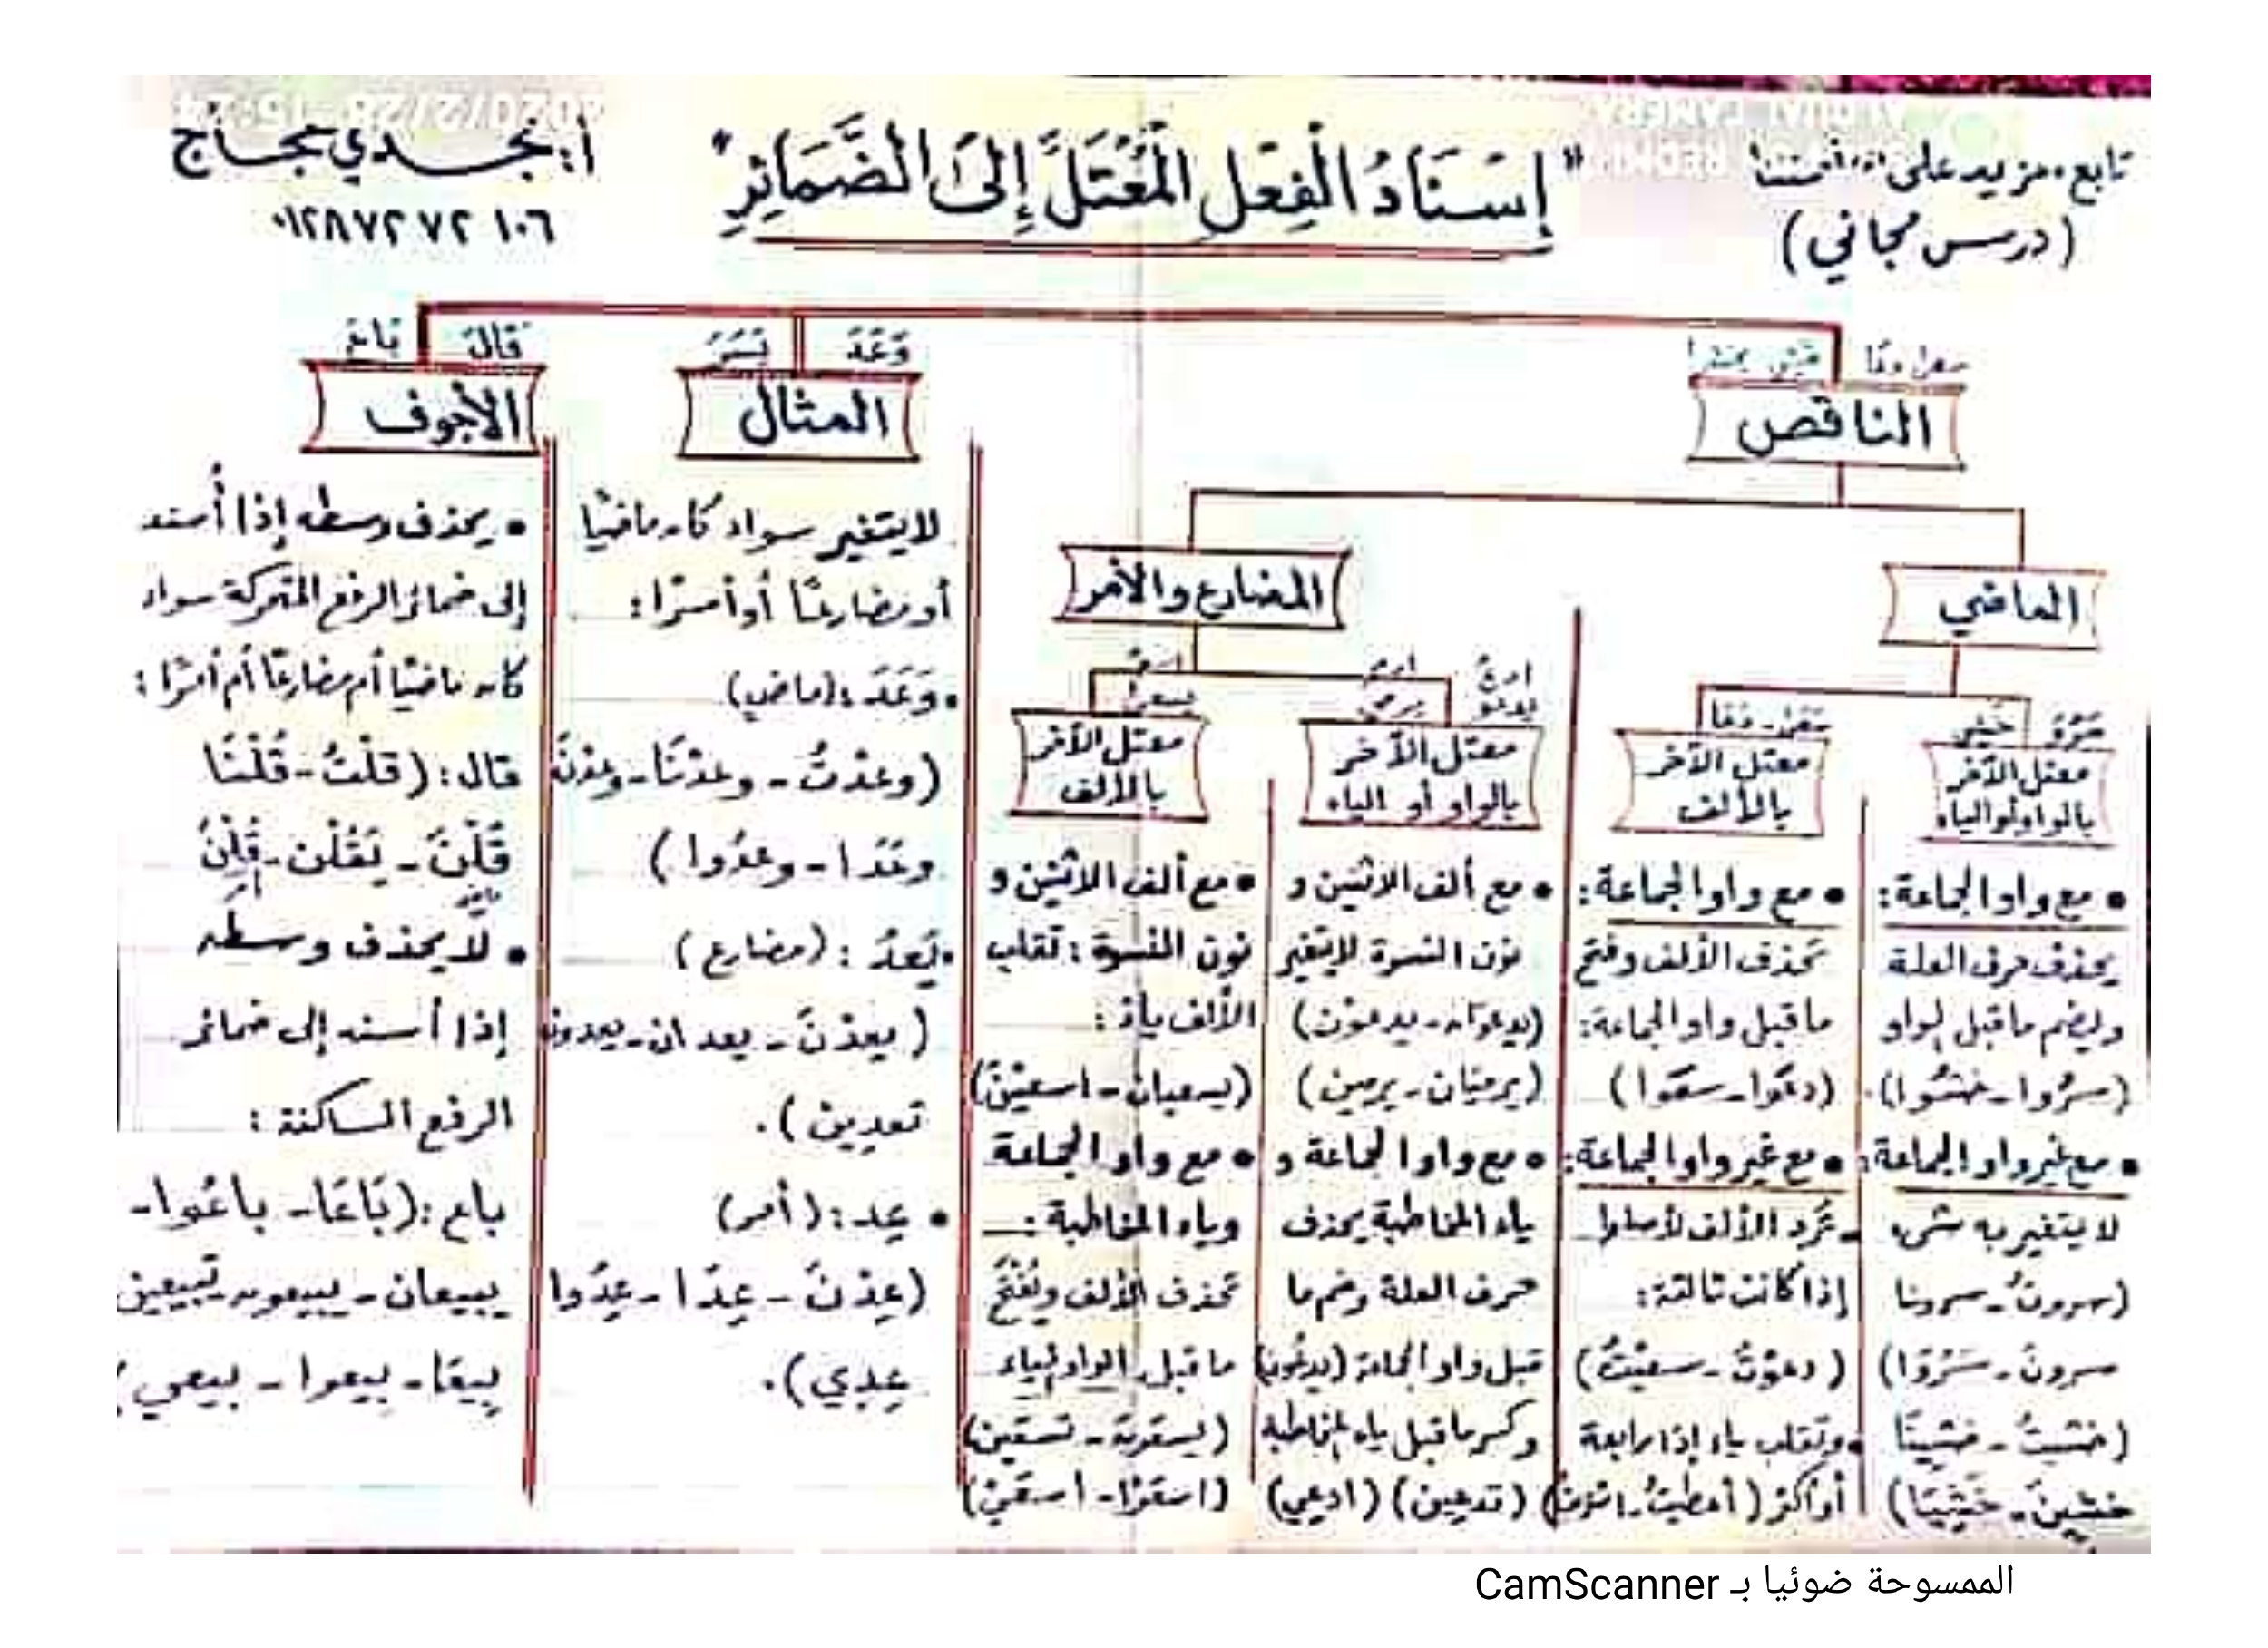 تابع مزيد على
(درس مجاني)
"إِسْنَادُ الْفِعْلِ الْمُعْتَلِّ إِلَى الضَّمَائِرِ"
٠١٢٨٧٢٧٢١٠٦
الناقص
الماضي
سَرُوَ خَشِيَ
معتل الآخر
بالواو أو الياء
• مع واو الجماعة:
يحذف حرف العلة
ويضم ما قبل الواو
(سَرُوا - خَشُوا).
• مع غير واو الجماعة:
لا يتغير به شيء
(سروتُ - سرونا
سرونَ - سَرُوَا)
(خشيتُ - خشينَا
خشينَ - خَشِيَا)
سعى - دعا
معتل الآخر
بالألف
• مع واو الجماعة:
تحذف الألف وفتح
ما قبل واو الجماعة:
(دعَوا - سعَوا)
• مع غير واو الجماعة:
- تُرد الألف لأصلها
إذا كانت ثالثة:
(دعوْتُ - سعيْتُ)
• وتقلب ياء إذا رابعة
أو أكثر (أعطيتُ -
المضارع والأمر
ادعُ ارمِ
يدعو يرمي
معتل الآخر
بالواو أو الياء
• مع ألف الاثنين و
نون النسوة لا يتغير
(يدعوَان - يدعوْن)
(يرميَان - يرمين)
• مع واو الجماعة و
ياء المخاطبة يحذف
حرف العلة وضم ما
قبل واو الجماعة (يدعُون)
وكسر ما قبل ياء المخاطبة
(تدعين) (ادعي)
اسعَ
يسعى
معتل الآخر
بالألف
• مع ألف الاثنين و
نون النسوة: تقلب
الألف ياءً:
(يسعيان - اسعيْنَ)
• مع واو الجماعة
وياء المخاطبة:
تحذف الألف ويُفْتَح
ما قبل الواو والياء
(يسعَون - تسعَين)
(اسعَوْا - اسعَيْ)
وَعَدَ
المثال
لا يتغير سواء كان ماضيًا
أو مضارعًا أو أمرًا:
• وَعَدَ: (ماضي)
(وعدْتُ - وعدْنَا - وعدْنَ
وعَدَا - وعدُوا)
• يَعِدُ: (مضارع)
(يعدْنَ - يعدان - يعدون
تعدين).
• عِد: (أمر)
(عِدْنَ - عِدَا - عِدُوا
عِدِي).
قالَ بَاعَ
الأجوف
• يحذف وسطه إذا أُسند
إلى ضمائر الرفع المتحركة سواء
كان ماضيًا أم مضارعًا أم أمرًا:
قال: (قلْتُ - قُلْنَا
قُلْنَ - يَقُلْن - قُلْنَ
• لا يحذف وسطه
إذا أسند إلى ضمائر
الرفع الساكنة:
باع: (بَاعَا - باعُوا -
يبيعان - يبيعون - تَبِيعين
بِيعَا - بيعوا - بيعي
الممسوحة ضوئيا بـ CamScanner